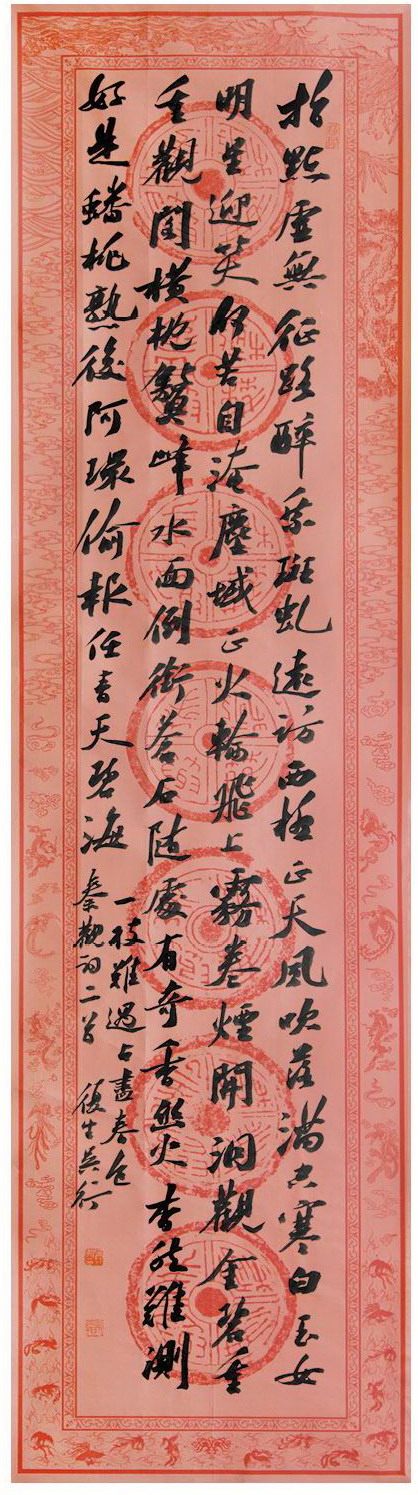 指點虛無征路醉乘斑虬遠訪西極正天風吹落滿空寒白玉女
明星迎笑何苦自淹塵域正火輪飛上霧卷煙開洞觀金碧重
重觀閣橫枕鰲峰水面倒銜蒼石隨處有奇香幽火杳然難測
好是蟠桃熟後阿環偷報任青天碧海
一枝難遇占盡春色
秦觀詞二首